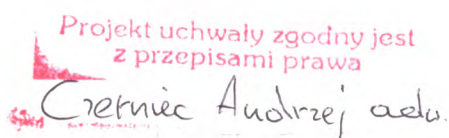 Projekt uchwały zgodny jest
z przepisami prawa
Czerniec Andrzej adw.